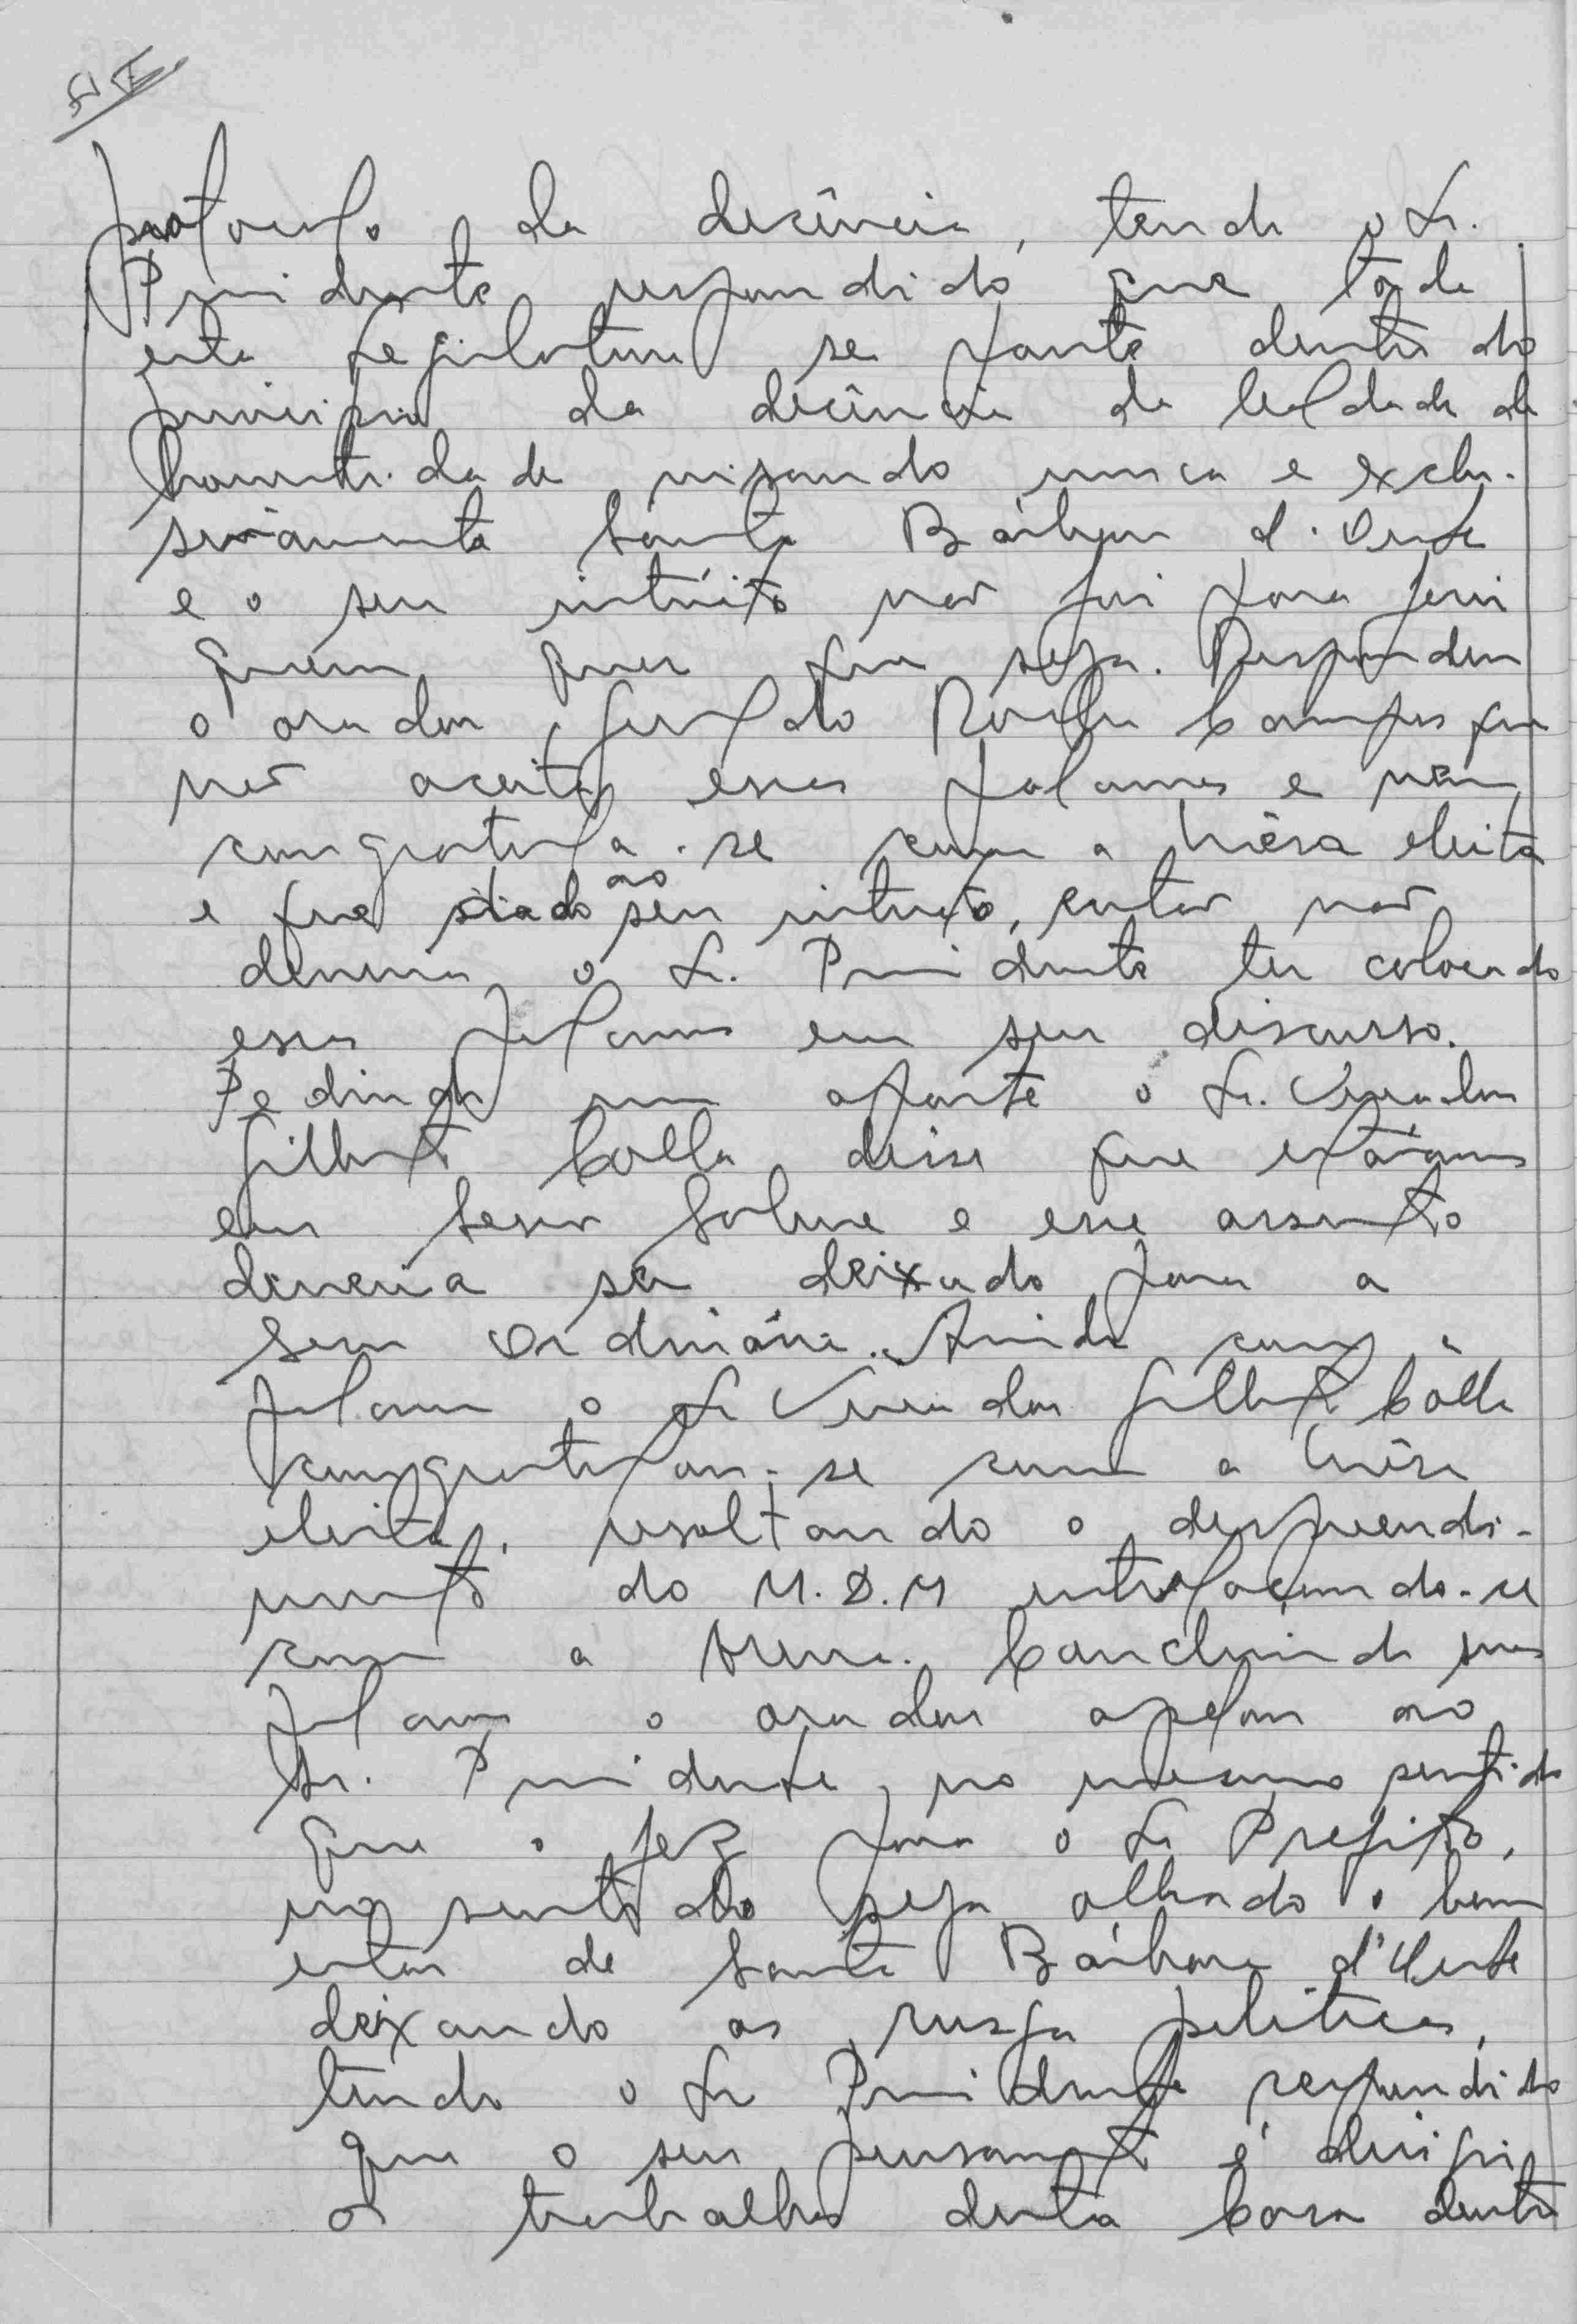 protocolo da decência, tendo o Sr.
Presidente respondido que tôda
esta Legislatura se paute dentro do
principio da decência da lealdade da
honestidade visando unica e exclu-
sivamente Santa Bárbara d'Oeste
e o seu intúito não foi para ferir
quem quer que seja. Respondeu
o orador, Geraldo Rocha Campos que
não aceita essas palavras e nem
congratula-se com a Mêsa eleita
e que dado ao seu intuito, entao não
deveria o Sr. Presidente ter colocado
essas palavras em seu discurso.
Pedindo um aparte o Sr. Vereador
Gilberto Colla disse que estávamos
em Sessão Solene e esse assunto
deveria ser deixado para a
Sessão Ordinária. Ainda com a
palavra o Sr Vereador Gilberto Colla
congratulou-se com a Mêsa
eleita, resaltando o desprendi-
mento do M.D.M entrelaçando-se
com a Arena. Concluindo suas
palavras o orador apelou ao
Sr. Presidente, no mesmo sentido
que o fez para o Sr Prefeito,
no sentido seja olhado o bem
estar de Santa Bárbara d'Oeste
deixando as rusga politicas,
tendo o Sr Presidente respondido
que o seu pensamento é dirigir
os trabalhos desta Casa dentro